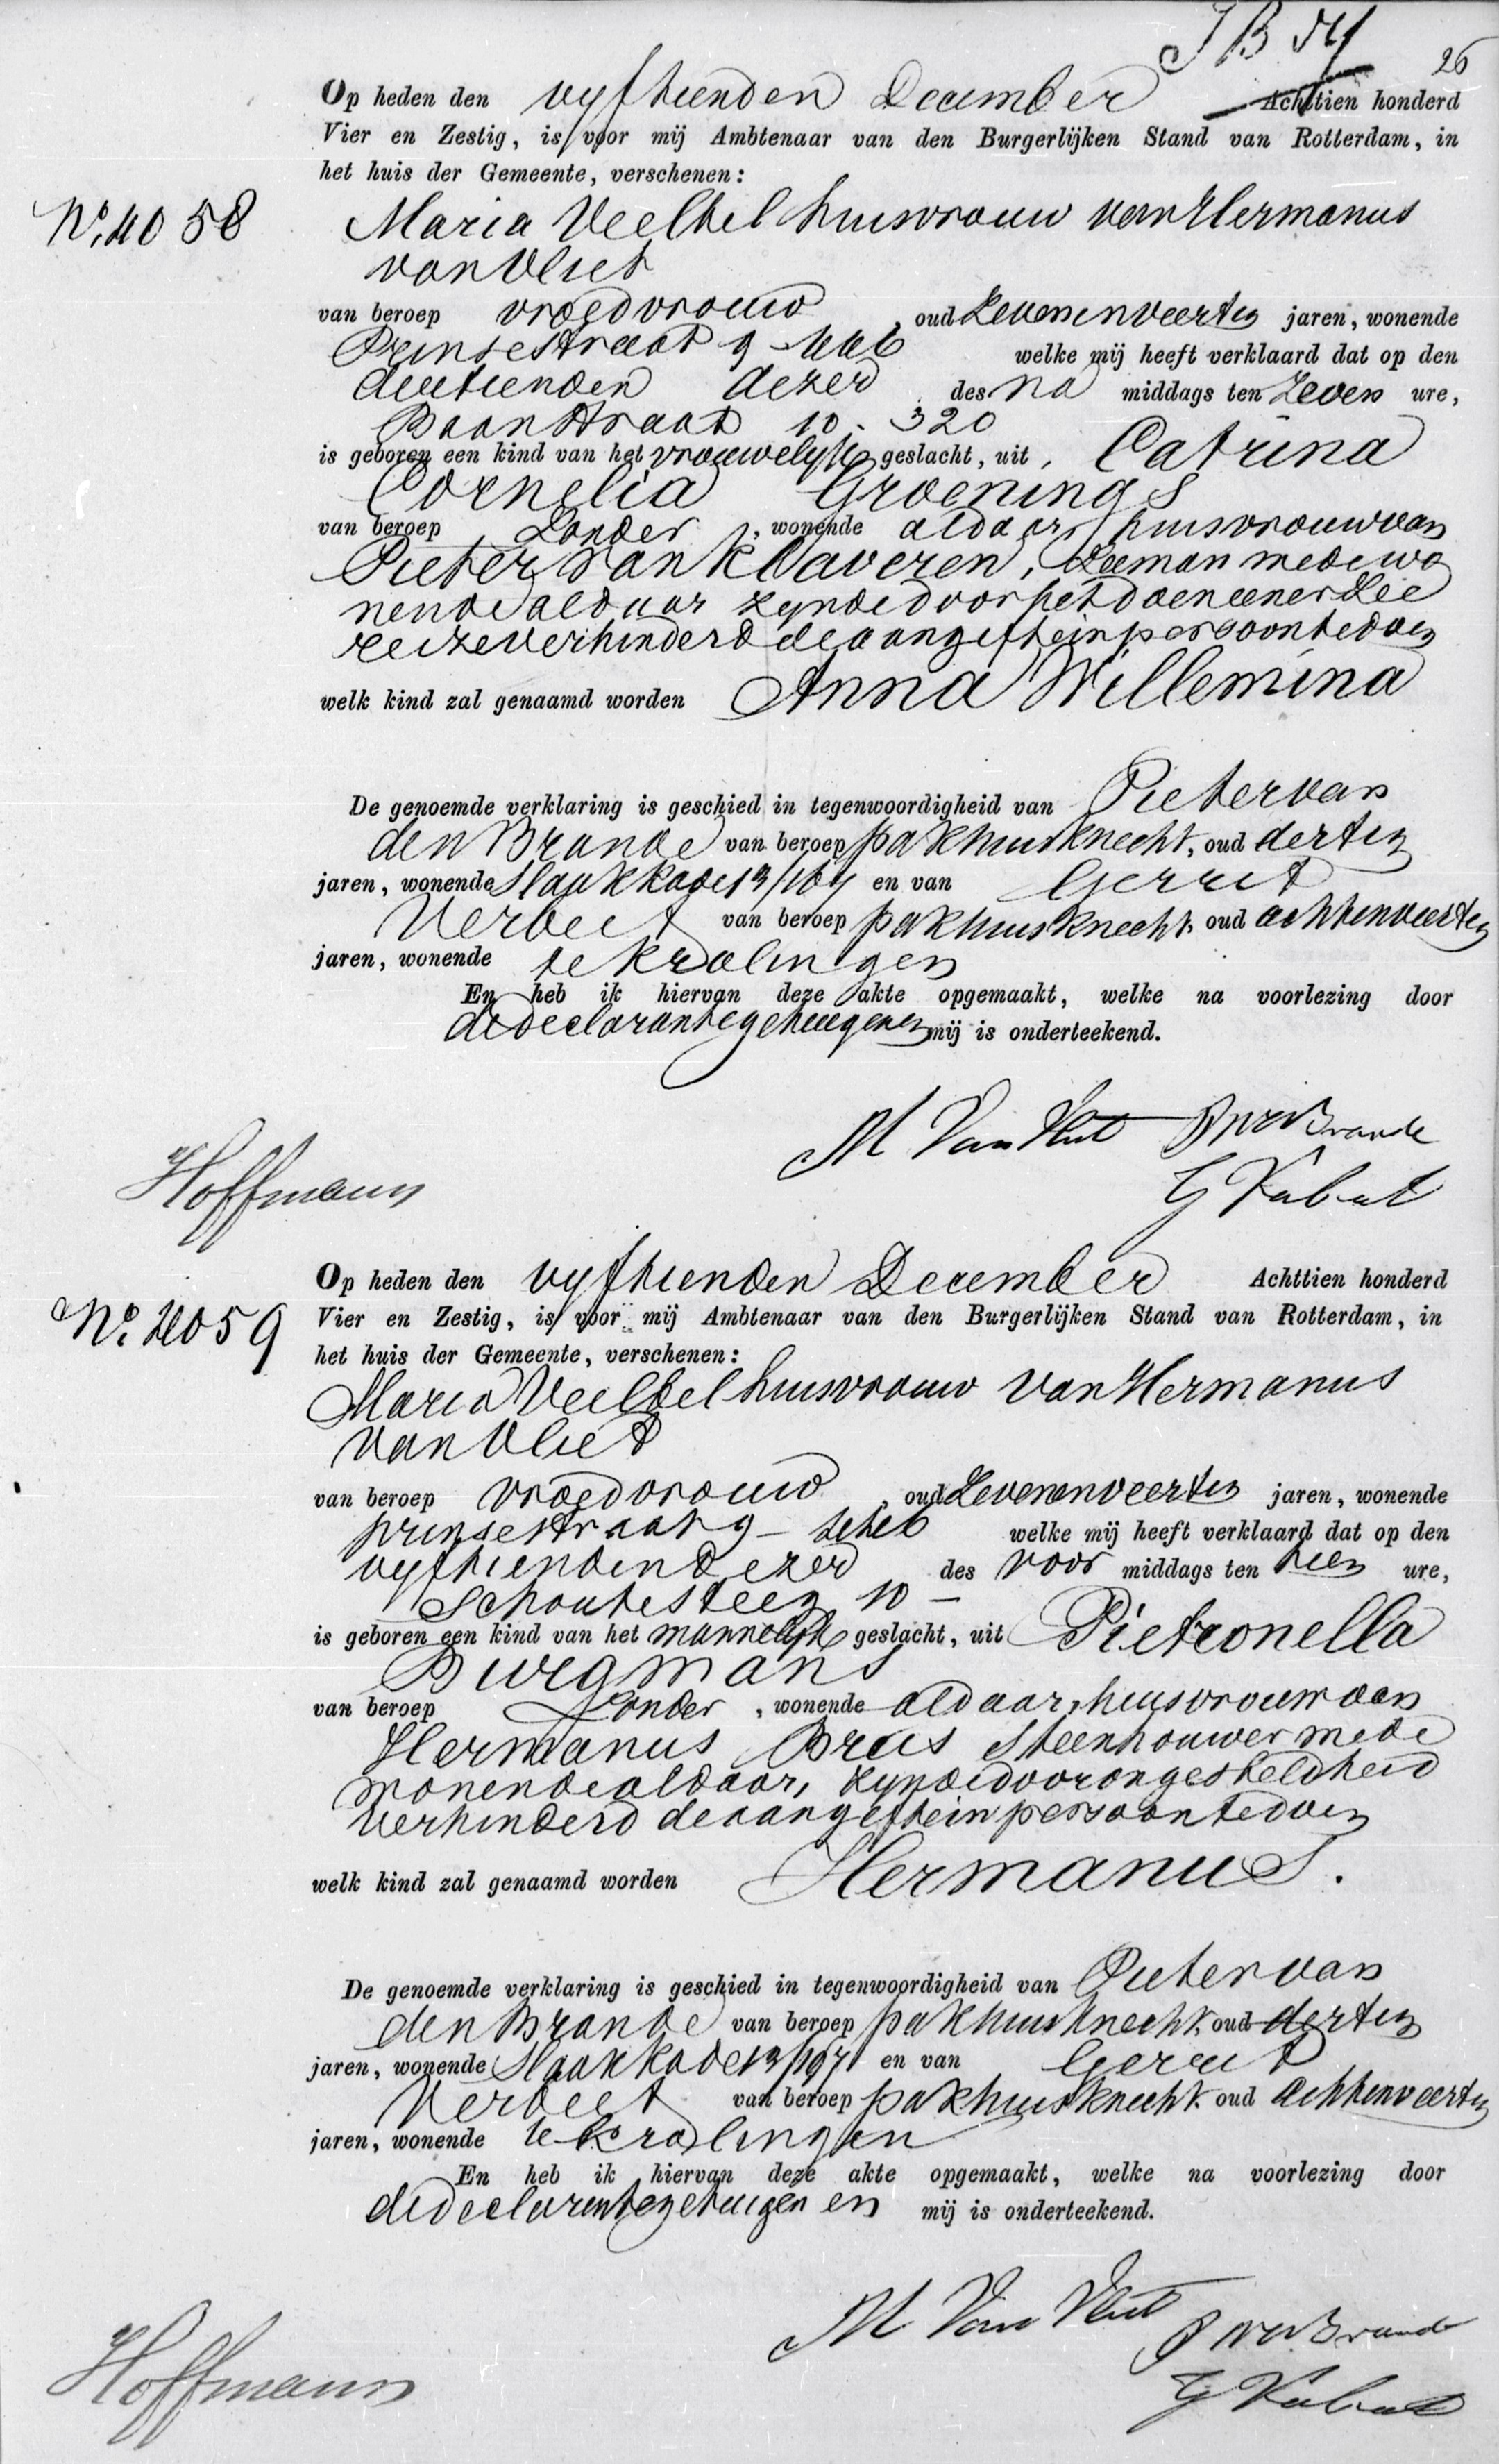 26
Op heden den vyftienden December Achttien honderd
Vier en Zestig, is voor mij Ambtenaar van den Burgerlijken Stand van Rotterdam, in
het huis der Gemeente, verschenen:
No. 4058 Maria Veelbel huisvrouw van Hermanus
van Vliet
van beroep vroedvrouw, oud Zevenenveertig jaren, wonende
Prinsestraat 9 - welke mij heeft verklaard dat op den
dertienden dezer des na middags ten Zeven ure,
Baanstraat 10 - 320
is geboren een kind van het vrouwelyk geslacht, uit Catrina
Cornelia Groenings
van beroep Zonder, wonende aldaar, huisvrouw van
Pieter van Klaveren, Zeeman mede wo
nende aldaar zynde door het doen eener Zee
reize verhinderd de aangifte in persoon te doen
welk kind zal genaamd worden Anna Willemina
De genoemde verklaring is geschied in tegenwoordigheid van Pieter van
den Brande van beroep pakhuisknecht, oud dertig
jaren, wonende Slaakkade 13/167 en van Gerrit
van beroep pakhuisknecht, oud achtenveertig
jaren, wonende te Kralingen
En heb ik hiervan deze akte opgemaakt, welke na voorlezing door
de declarante getuigen en mij is onderteekend.
M Van Vliet Brande
Hoffmann G
Op heden den vyftienden December Achttien honderd
No. 4059 Vier en Zestig, is voor mij Ambtenaar van den Burgerlijken Stand van Rotterdam, in
het huis der Gemeente, verschenen:
Maria Veelbel huisvrouw van Hermanus
van Vliet
van beroep vroedvrouw, oud Zevenenveertig jaren, wonende
prinsestraat 9 - welke mij heeft verklaard dat op den
vyftienden dezer des voor middags ten tien ure,
Schoutesteeg 10 -
is geboren een kind van het mannelyk geslacht, uit Pietronella
Burgmans
van beroep Zonder, wonende aldaar, huisvrouw van
Hermanus Brus Steenhouwer mede
wonende aldaar, zynde door ongesteldheid
verhinderd de aangifte in persoon te doen
welk kind zal genaamd worden Hermanus.
De genoemde verklaring is geschied in tegenwoordigheid van Pieter van
den Brande van beroep pakhuisknecht, oud dertig
jaren, wonende Slaakkade 13/167 en van Gerrit
van beroep pakhuisknecht, oud achtenveertig
jaren, wonende te Kralingen
En heb ik hiervan deze akte opgemaakt, welke na voorlezing door
de declarante getuigen en mij is onderteekend.
M Van Vliet Brande
Hoffmann G